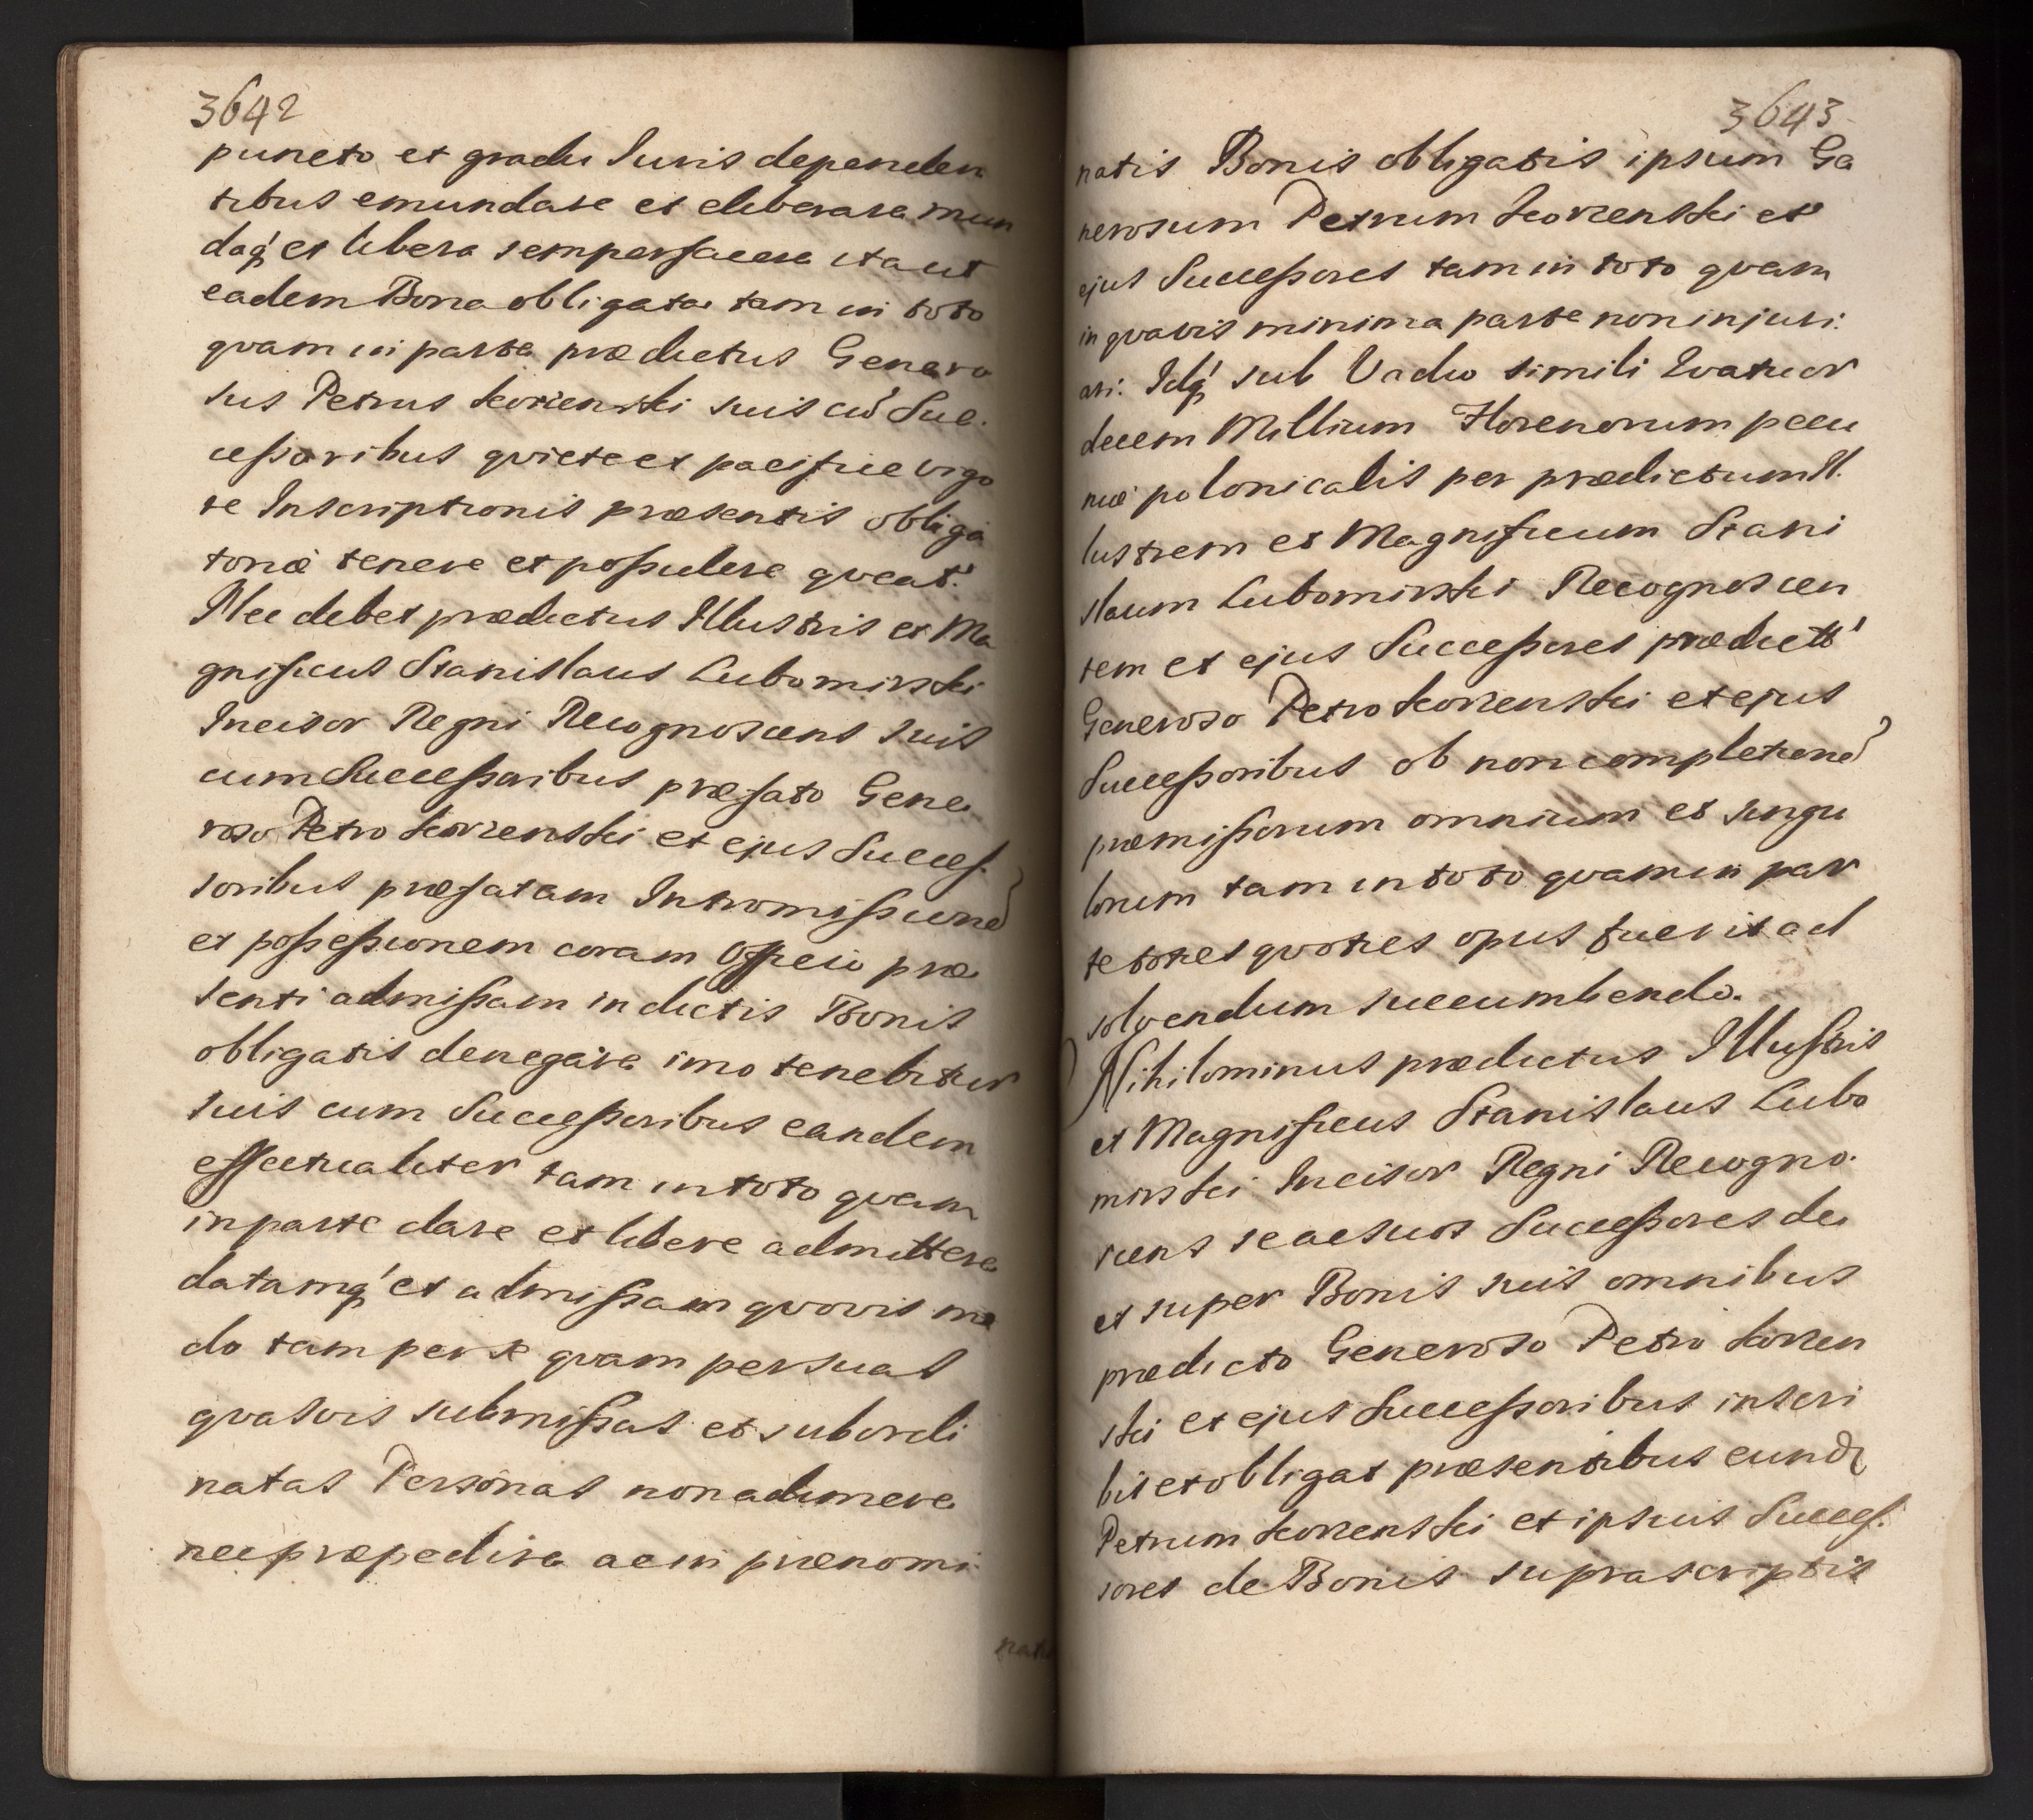 3642
puncto et gradu Iuris dependen
tibus emundare et eliberare mun
daq' et libera semper facere ita ut
eadem Bona obligata tam in toto
qvam in parte prædictus Genero
sus Petrus Korzenski suis cū Suc.
cessoribus qviete et pacifice vigo
re Inscriptionis præsentis obliga
toriæ tenere et possidere qveat.
Nec debet prædictus Illustris et Ma
gnificus Stanislaus Lubomirski
Incisor Regni Recognoscens suis
cum Successoribus præfato Gene
roso Petro Korzenski et ejus Succes.
soribus præfatam Intromissione
et possessionem coram Officio præ
senti admissam in dictis Bonis
obligatis denegare imo tenebitur
suis cum Successoribus eandem
effectualiter tam in toto qvam
in parte dare et libere admittere
datamq' et admissam qvovis mo
do tam per se qvam per suas
qvasvis submissas et subordi
natas Personas non adimere
nec præpedire ac in prænomi
natis
3643
natis Bonis obligatis ipsum Ge
nerosum Petrum Korzenski et
ejus Successores tam in toto qvam
in qvavis minima parte non injuri:
ari: Idq' sub Vadio simili Qvatuor
decem Millium Florenorum pecu
niæ polonicalis per prædictum Il.
lustrem et Magnificum Stani
slaum Lubomirski Recognoscen
tem et ejus Successores prædictt'
Generoso Petro Korzenski et ejus
Successoribus ob non completione
præmissorum omnium et singu
lorum tam in toto qvam in par
te toties qvoties opus fuerit ad
solvendum succumbendo.
Nihilominus prædictus Illustris
et Magnificus Stanislaus Lubo
mirski Incisor Regni Recogno.
scens se ac suos Successores de
et super Bonis suis omnibus
prædicto Generoso Petro Korzen
ski et ejus Successoribus inscri
bit et obligat præsentibus eund
Petrum Korzenski et ipsius Succes.
sores de Bonis suprascriptis